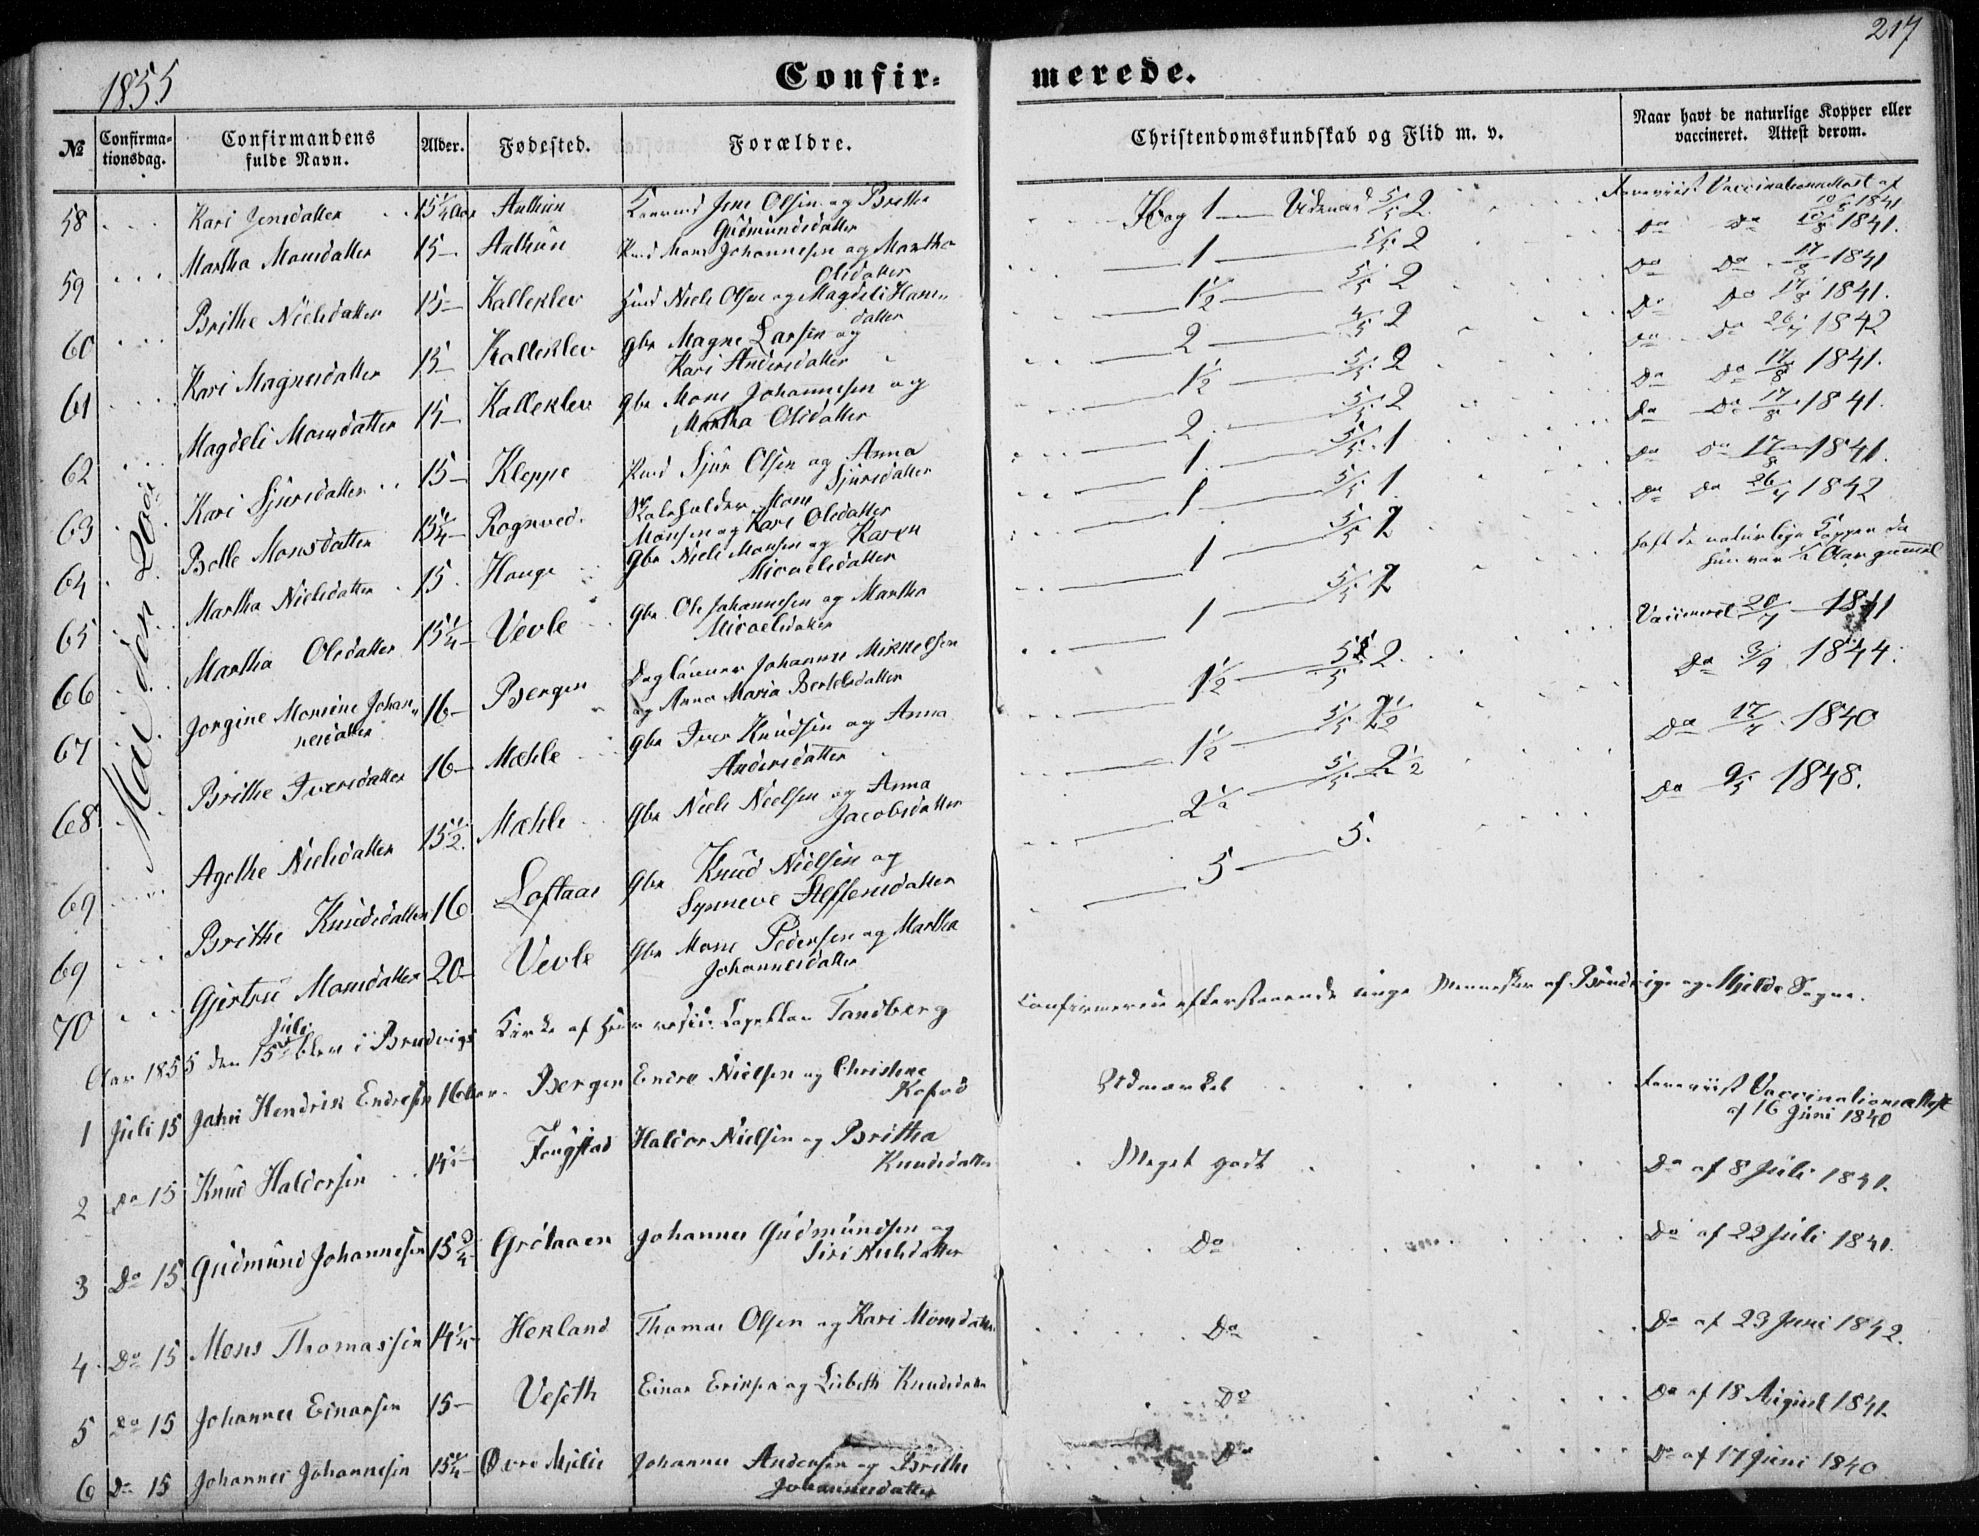 217
1855
Confir- merede.
№ Confirma-tionsdag. Confirmandens fulde Navn. Alder. Fødested. Forældre. Christendomskundskab og Flid m. v. Naar havt de naturlige Kopper eller vaccineret. Attest derom.
Mai den
58 Kari Jensdatter 15¼ Aar Jens Olsen og Brithe Gudmundsdatter Kbog 1 Udenad 2 Foreviist Vaccinationsattest af 1841
59 Martha Monsdatter 15 Mons Johannesen og Martha Olsdatter 1 2 Do Do 1841.
60 Brithe Nielsdatter 15 Kalleklev Niels Olsen og Magdeli Hansdatter 1½ 2 Do Do 17/8 1841
61 Kari Magnesdatter 15 Kalleklev Gbr Magne Larsen og Kari Andersdatter 2 2 Do Do 17/8 1841.
62 Magdeli Monsdatter 15 Kalleklev Gbr Mons Johannesen og Martha Olsdatter 1½ 2 Do Do 1842
63 Kari Sjursdatter 15 Kleppe Sjur Olsen og Anna Sjursdatter 2 2 Do Do 17/8 1841.
64 Bolle Monsdatter 15¼ Rognved Mons Monsen og Kari Olsdatter 1 1 Do Do 17/8 1841.
65 Martha Nielsdatter 15 Hauge Gbr Niels Monsen og Karen Micaelsdatter 1 1 Do Do 17/8 1841
66 Martha Olsdatter 15¼ Vevle Gbr Ole Johannesen og Martha Micaelsdatter 1 2 Do Do 1842
67 Jorgine Monsine Johannesdatter 16 Bergen Daglønner Johannes Mikkelsen og Anna Maria Bertelsdatter 1 2 haft de naturlige Kopper da hun var ½ Aar gammel
68 Brithe Iversdatter 16 Mæhle Gbr Iver Knudsen og Anna Andersdatter 1½ 2 Vaccineret 1841
69 Agethe Nielsdatter 15½ Mæhle Gbr Niels Nielsen og Anna Jacobsdatter 1½ 2½ Do 3/9 1844.
69 Brithe Knudsdatter 16 Loftaas Gbr Knud Nielsen og Synneve Steffensdatter 2½ 2½ Do 1840
70 Gjertru Monsdatter 20 Vevle Gbr Mons Pedersen og Martha Johannesdatter 5 5. Do 9/5 1848.
Aar 1855 den 15de Juli blev i Brudvigs Kirke af Herr resid: Capellan Tandberg Confirmerede efterstaaende unge Mennesker af Brudvigs og Mjelde Sogne.
1 Juli 15 Jahn Hendrik Endresen 16 Aar Bergen Endre Nielsen og Christine Kofod Udmærket Foreviist Vaccinationsattest af 16 Juni 1840
2 Do 15 Knud Haldorsen Fougstad Haldor Nielsen og Britha Knudsdatter Meget godt Do af 8 Juli 1841.
3 Do 15 Gudmund Johannesen 15¾ Grótaaen Johannes Gudmundsen og Siri Nielsdatter Do Do af 22 Juli 1841.
4 Do 15 Mons Thomassen 14¼ Herland Thomas Olsen og Kari Monsdatter Do Do af 23 Juni 1842.
5 Do 15 Johannes Einarsen 15 Veseth Einar Eriksen og Lisbeth Knudsdatter Do Do af 18 August 1841.
6 Do 15 Johannes Johannesen 15¼ Øvre Mjelde Johannes Andersen og Brithe Johannesdatter Do Do af 17 Juni 1840